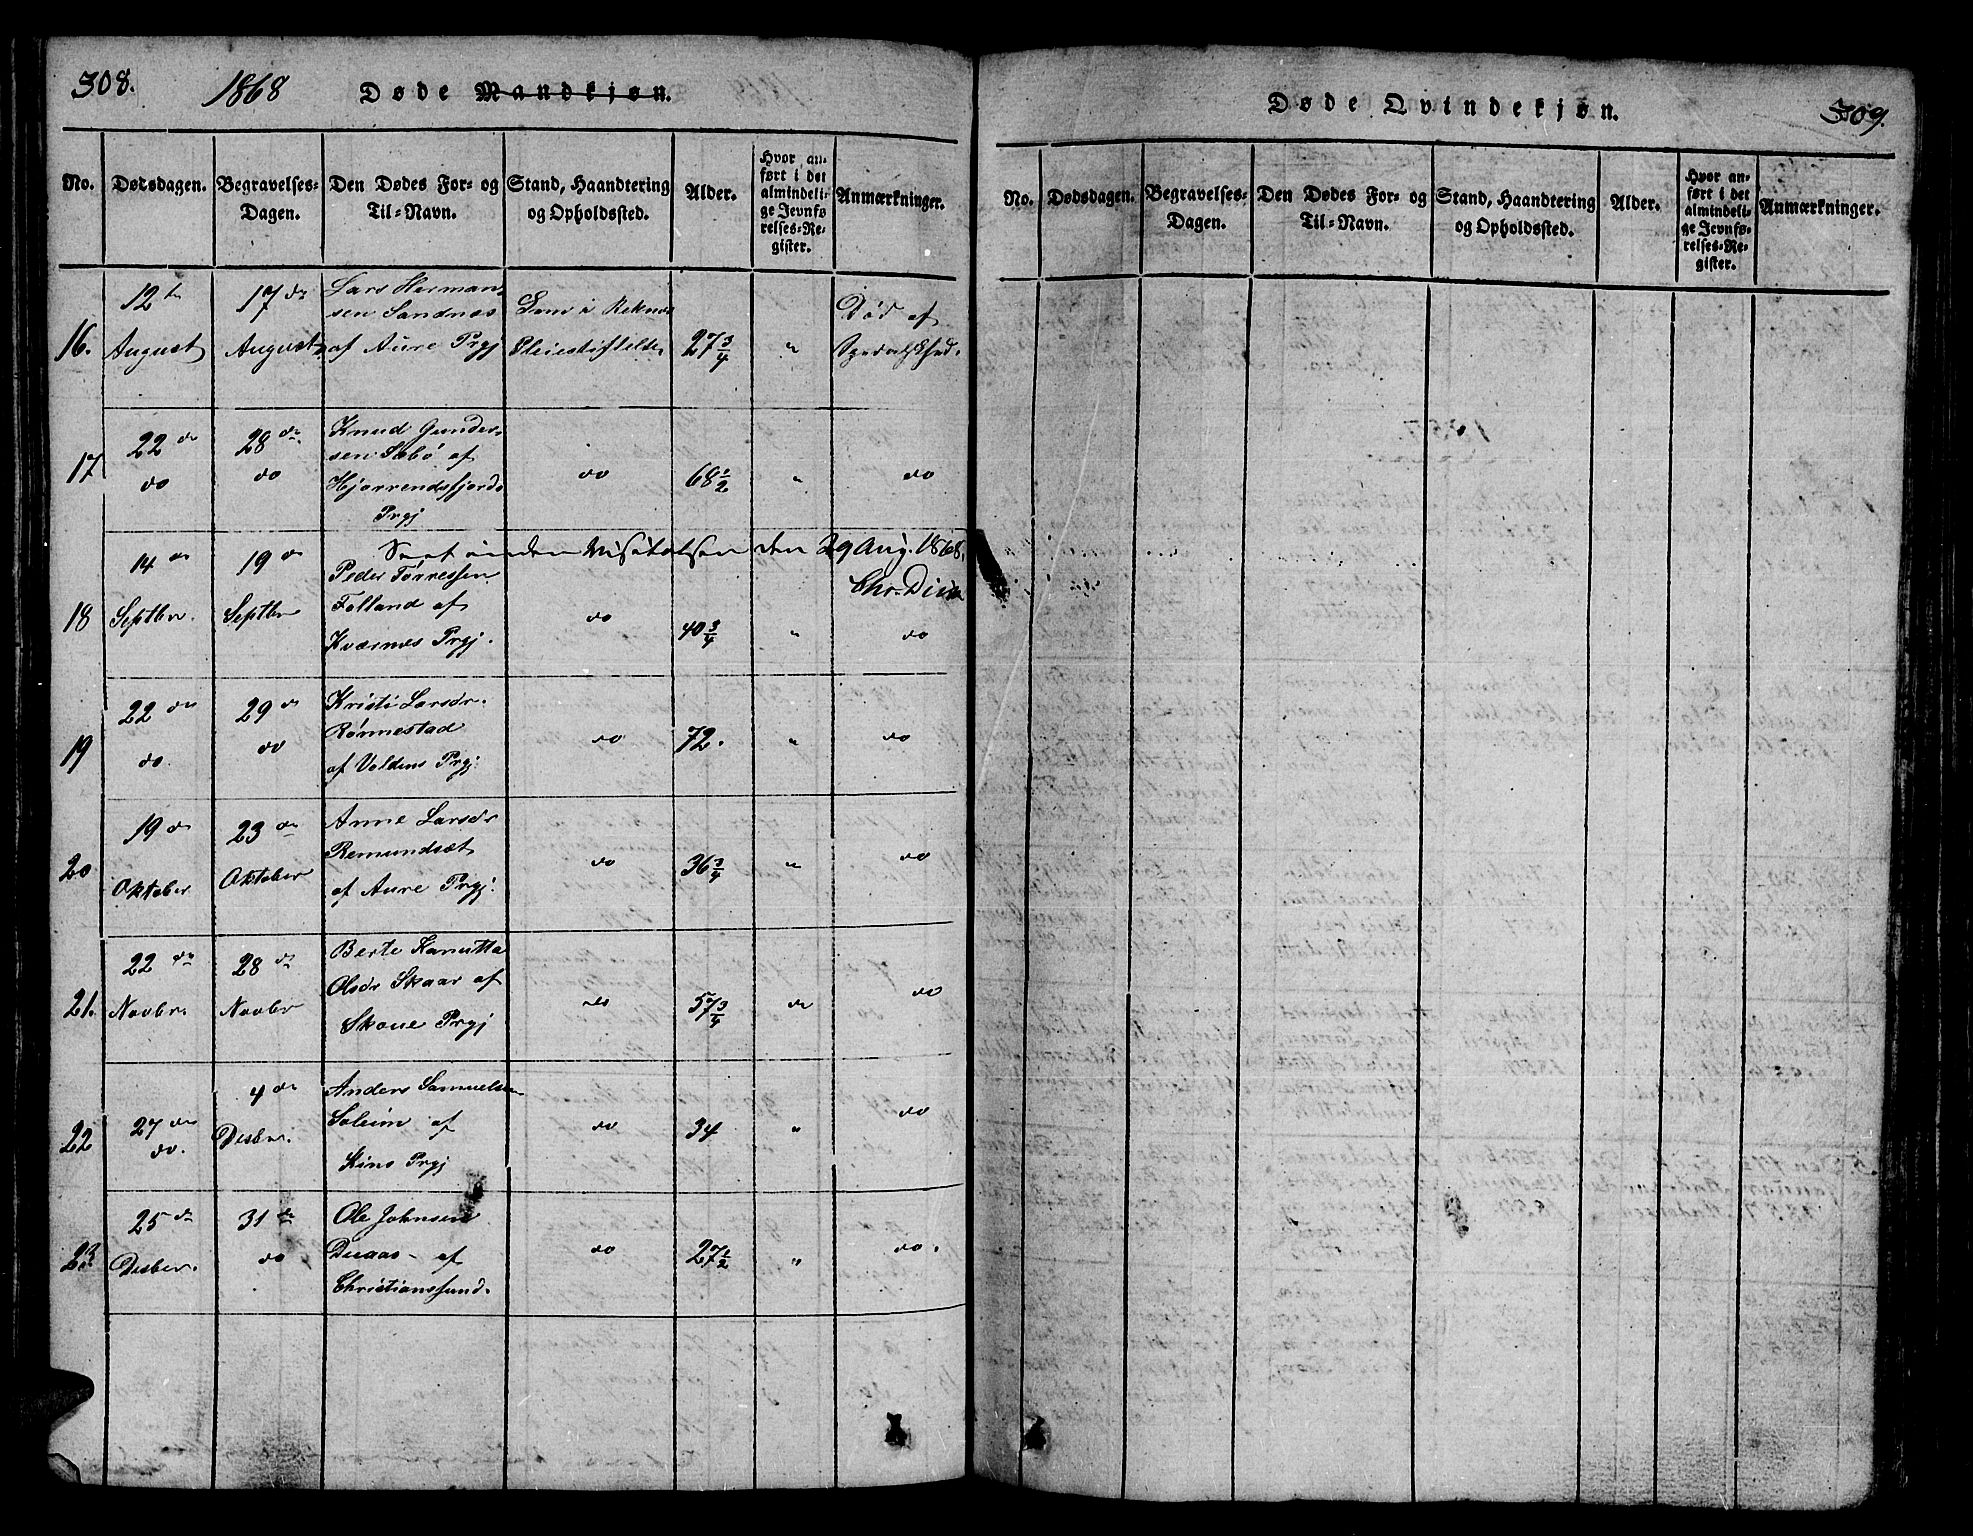 308.
1868
Døde Mandkjøn.
No.
Dødsdagen.
Begravelses-
Dagen.
Den Dødes For- og
Til-Navn.
Stand, Haandtering
og Opholdssted.
Alder.
Hvor an-
ført i det
almindeli-
ge Jevnfø
relses-Re-
gister.
Anmærkninger.
16.
12 te
August
17 de
August
Lars Herman-
sen Sandnes
af Aure Prgj
Lem i Reknes
Pleiestiftelse
27 3/4
"
Død af
Spedalskhed.
17
22 de
do
28 de
do
Knud Gunder-
sen Sæbø af
Hjørrendsfjords
Prgj
do
68 1/2
"
do
Seet under Visitatsen den 29 Aug. 1868.
18
14 de
Septbr.
19 de
Septbr
Peder Tørressen
Folland af
Kværnes Prgj.
do
40 3/4
"
do
19
22 de
do.
29 de
do
Kristi Larsdr.
Rønnestad
af Voldens Prgj.
do
72.
"
do
20
19 de
Oktober
23 de
Oktober
Anne Larsdr
Remundsæt
af Aure Prgj.
do
36 3/4
"
do
21.
22 de
Novbr.
28 de
Novbr
Berte Kanutta
Olsdr Skaar af
Skoue Prgj
do
57 3/4
"
do
22
27 de
do.
4 de
Desbr.
Anders Samuelsen
Soleim af
Kins Prgj
do
34
"
do
23
25 de
Desber.
31 de
do
Ole Johnsen
Duaas - af
Christianssund.
do
27 1/2
"
do.
Døde Qvindekjøn.
309.
No.
Dødsdagen.
Begravelses-
Dagen.
Den Dødes For- og
Til-Navn.
Stand, Haandtering
og Opholdssted.
Alder.
Hvor an-
ført i det
almindeli-
ge Jevnfø-
relses-Re-
gister.
Anmærkninger.